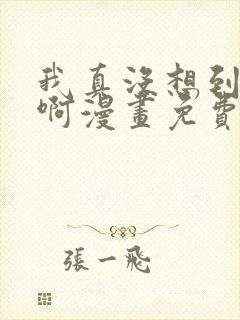 我真没想到
啊漫畫免費
張一飛